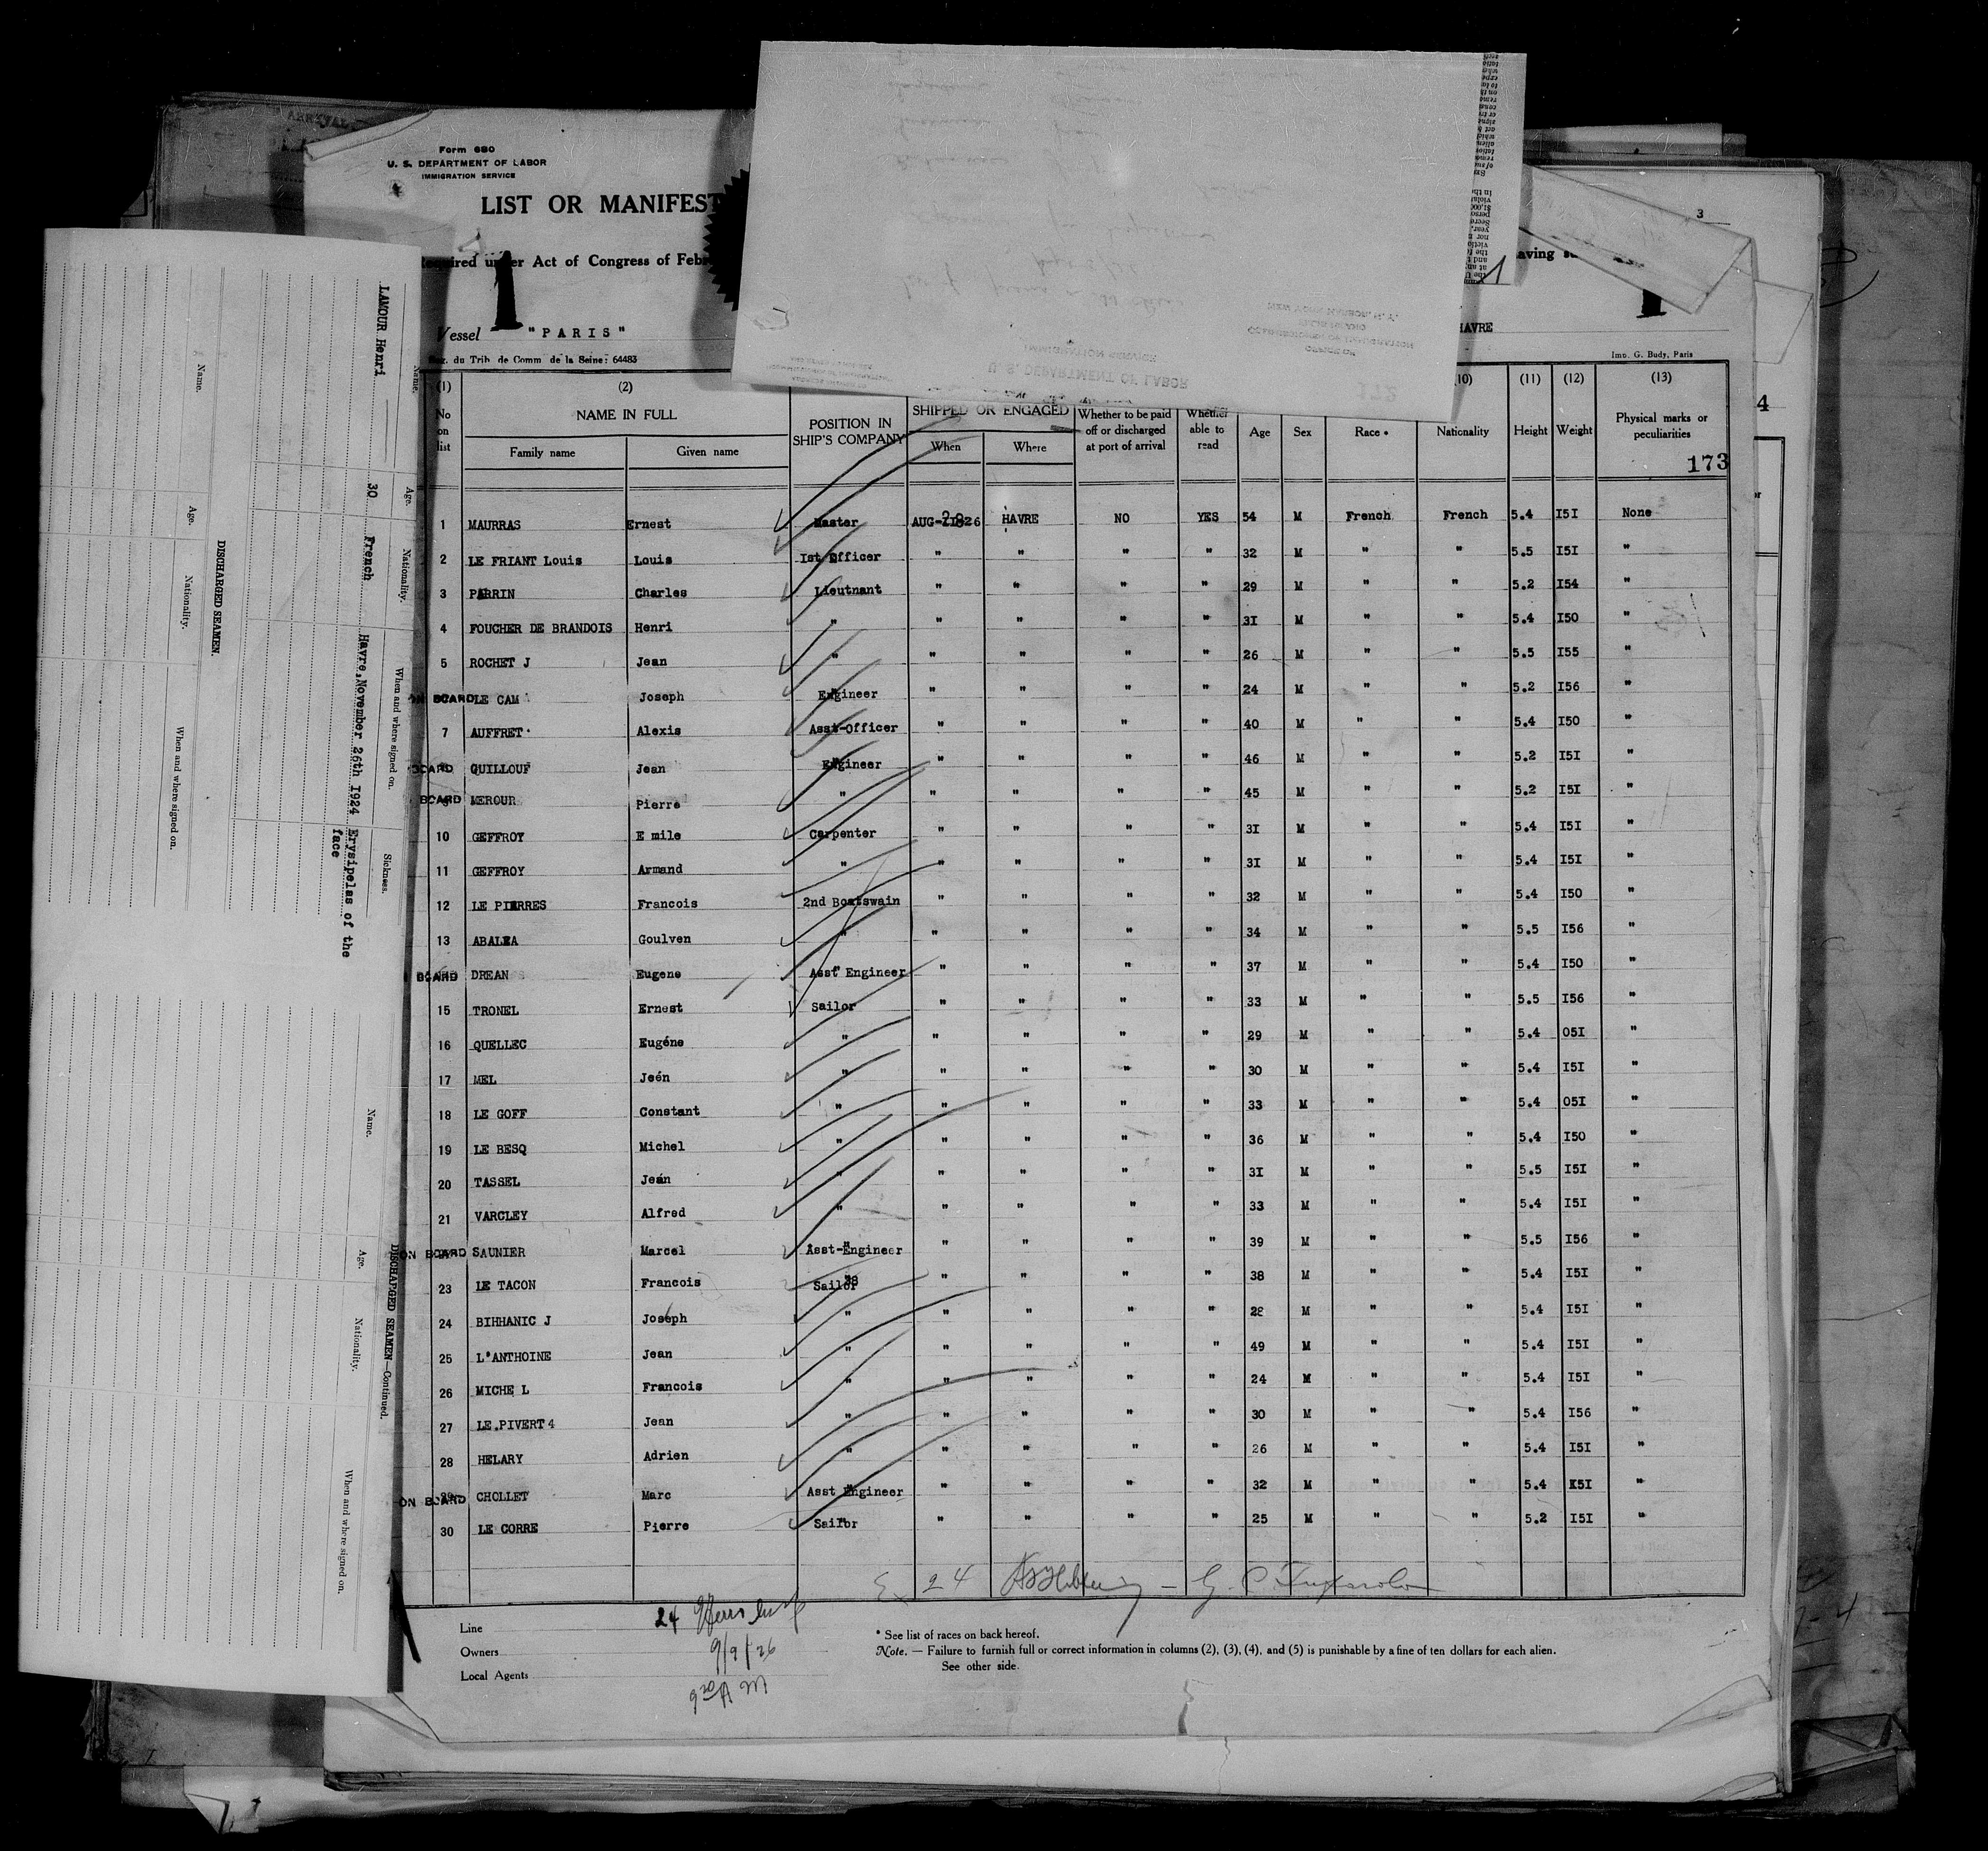 Form 680
U. S. DEPARTMENT OF LABOR
IMMIGRATION SERVICE
LIST OR MANIFEST
Required under Act of Congress of Feb
1
Vessel "PARIS"
HAVRE
du Trib. de Comm. de la Seine: 64483
Imp. G. Budy, Paris
3
4
(1) (2) (10) (11) (12) (13)
No on list NAME IN FULL POSITION IN SHIP'S COMPANY SHIPPED OR ENGAGED Whether to be paid off or discharged at port of arrival Whether able to read Age Sex Race * Nationality Height Weight Physical marks or peculiarities
Family name Given name When Where
173
1 MAURRAS Ernest Master HAVRE NO YES 54 M French French 5.4 I5I None
2 LE FRIANT Louis Louis Ist Officer " " " " 32 M " " 5.5 I5I "
3 PARRIN Charles Lieutnant " " " " 29 M " " 5.2 I54 "
4 FOUCHER DE BRANDOIS Henri " " " " " 3I M " " 5.4 I50 "
5 ROCHET J Jean " " " " " 26 M " " 5.5 I55 "
ON BOARD LE CAM Joseph Engineer " " " " 24 M " " 5.2 I56 "
7 AUFFRET Alexis Asst-Officer " " " " 40 M " " 5.4 I50 "
BOARD QUILLOUF Jean Engineer " " " " 46 M " " 5.2 I5I "
BOARD MEROUR Pierre " " " " " 45 M " " 5.2 I5I "
10 GEFFROY E mile Carpenter " " " " 3I M " " 5.4 I5I "
11 GEFFROY Armand " " " " " 3I M " " 5.4 I5I "
12 LE PIERRES Francois 2nd Boatswain " " " " 32 M " " 5.4 I50 "
13 ABALEA Goulven " " " " " 34 M " " 5.5 I56 "
BOARD DREAN Eugene Asst Engineer " " " " 37 M " " 5.4 I50 "
15 TRONEL Ernest Sailor " " " " 33 M " " 5.5 I56 "
16 QUELLEC Eugéne " " " " " 29 M " " 5.4 05I "
17 MEL Jeén " " " " " 30 M " " 5.4 I5I "
18 LE GOFF Constant " " " " " 33 M " " 5.4 05I "
19 LE BESQ Michel " " " " " 36 M " " 5.4 I50 "
20 TASSEL Jeán " " " " " 3I M " " 5.5 I5I "
21 VARCLEY Alfred " " " " " 33 M " " 5.4 I5I "
ON BOARD SAUNIER Marcel Asst-Engineer " " " " 39 M " " 5.5 I56 "
23 LE TACON Francois Sailor " " " " 38 M " " 5.4 I5I "
24 BIHHANIC J Joseph " " " " " 28 M " " 5.4 I5I "
25 L'ANTHOINE Jean " " " " " 49 M " " 5.4 I5I "
26 MICHE L Francois " " " " " 24 M " " 5.4 I5I "
27 LE.PIVERT 4 Jean " " " " " 30 M " " 5.4 I56 "
28 HELARY Adrien " " " " " 26 M " " 5.4 I5I "
ON BOARD 29 CHOLLET Marc Asst Engineer " " " " 32 M " " 5.4 I5I "
30 LE CORRE Pierre Sailor " " " " 25 M " " 5.2 I5I "
24
Line 24
Owners 9/9/26
Local Agents
* See list of races on back hereof.
Note. — Failure to furnish full or correct information in columns (2), (3), (4), and (5) is punishable by a fine of ten dollars for each alien.
See other side.
Name. Age. Nationality. When and where signed on. Sickness.
LAMOUR Henri 30 French Havre,November 26th I924 Erysipelas of the
face
DISCHARGED SEAMEN.
Name. Age. Nationality. When and where signed on.
DISCHARGED SEAMEN—Continued.
Name. Age. Nationality. When and where signed on.
U. S. DEPARTMENT OF LABOR
IMMIGRATION SERVICE
OFFICE OF
COMMISSIONER OF IMMIGRATION
ELLIS ISLAND
NEW YORK HARBOR, N. Y.
172